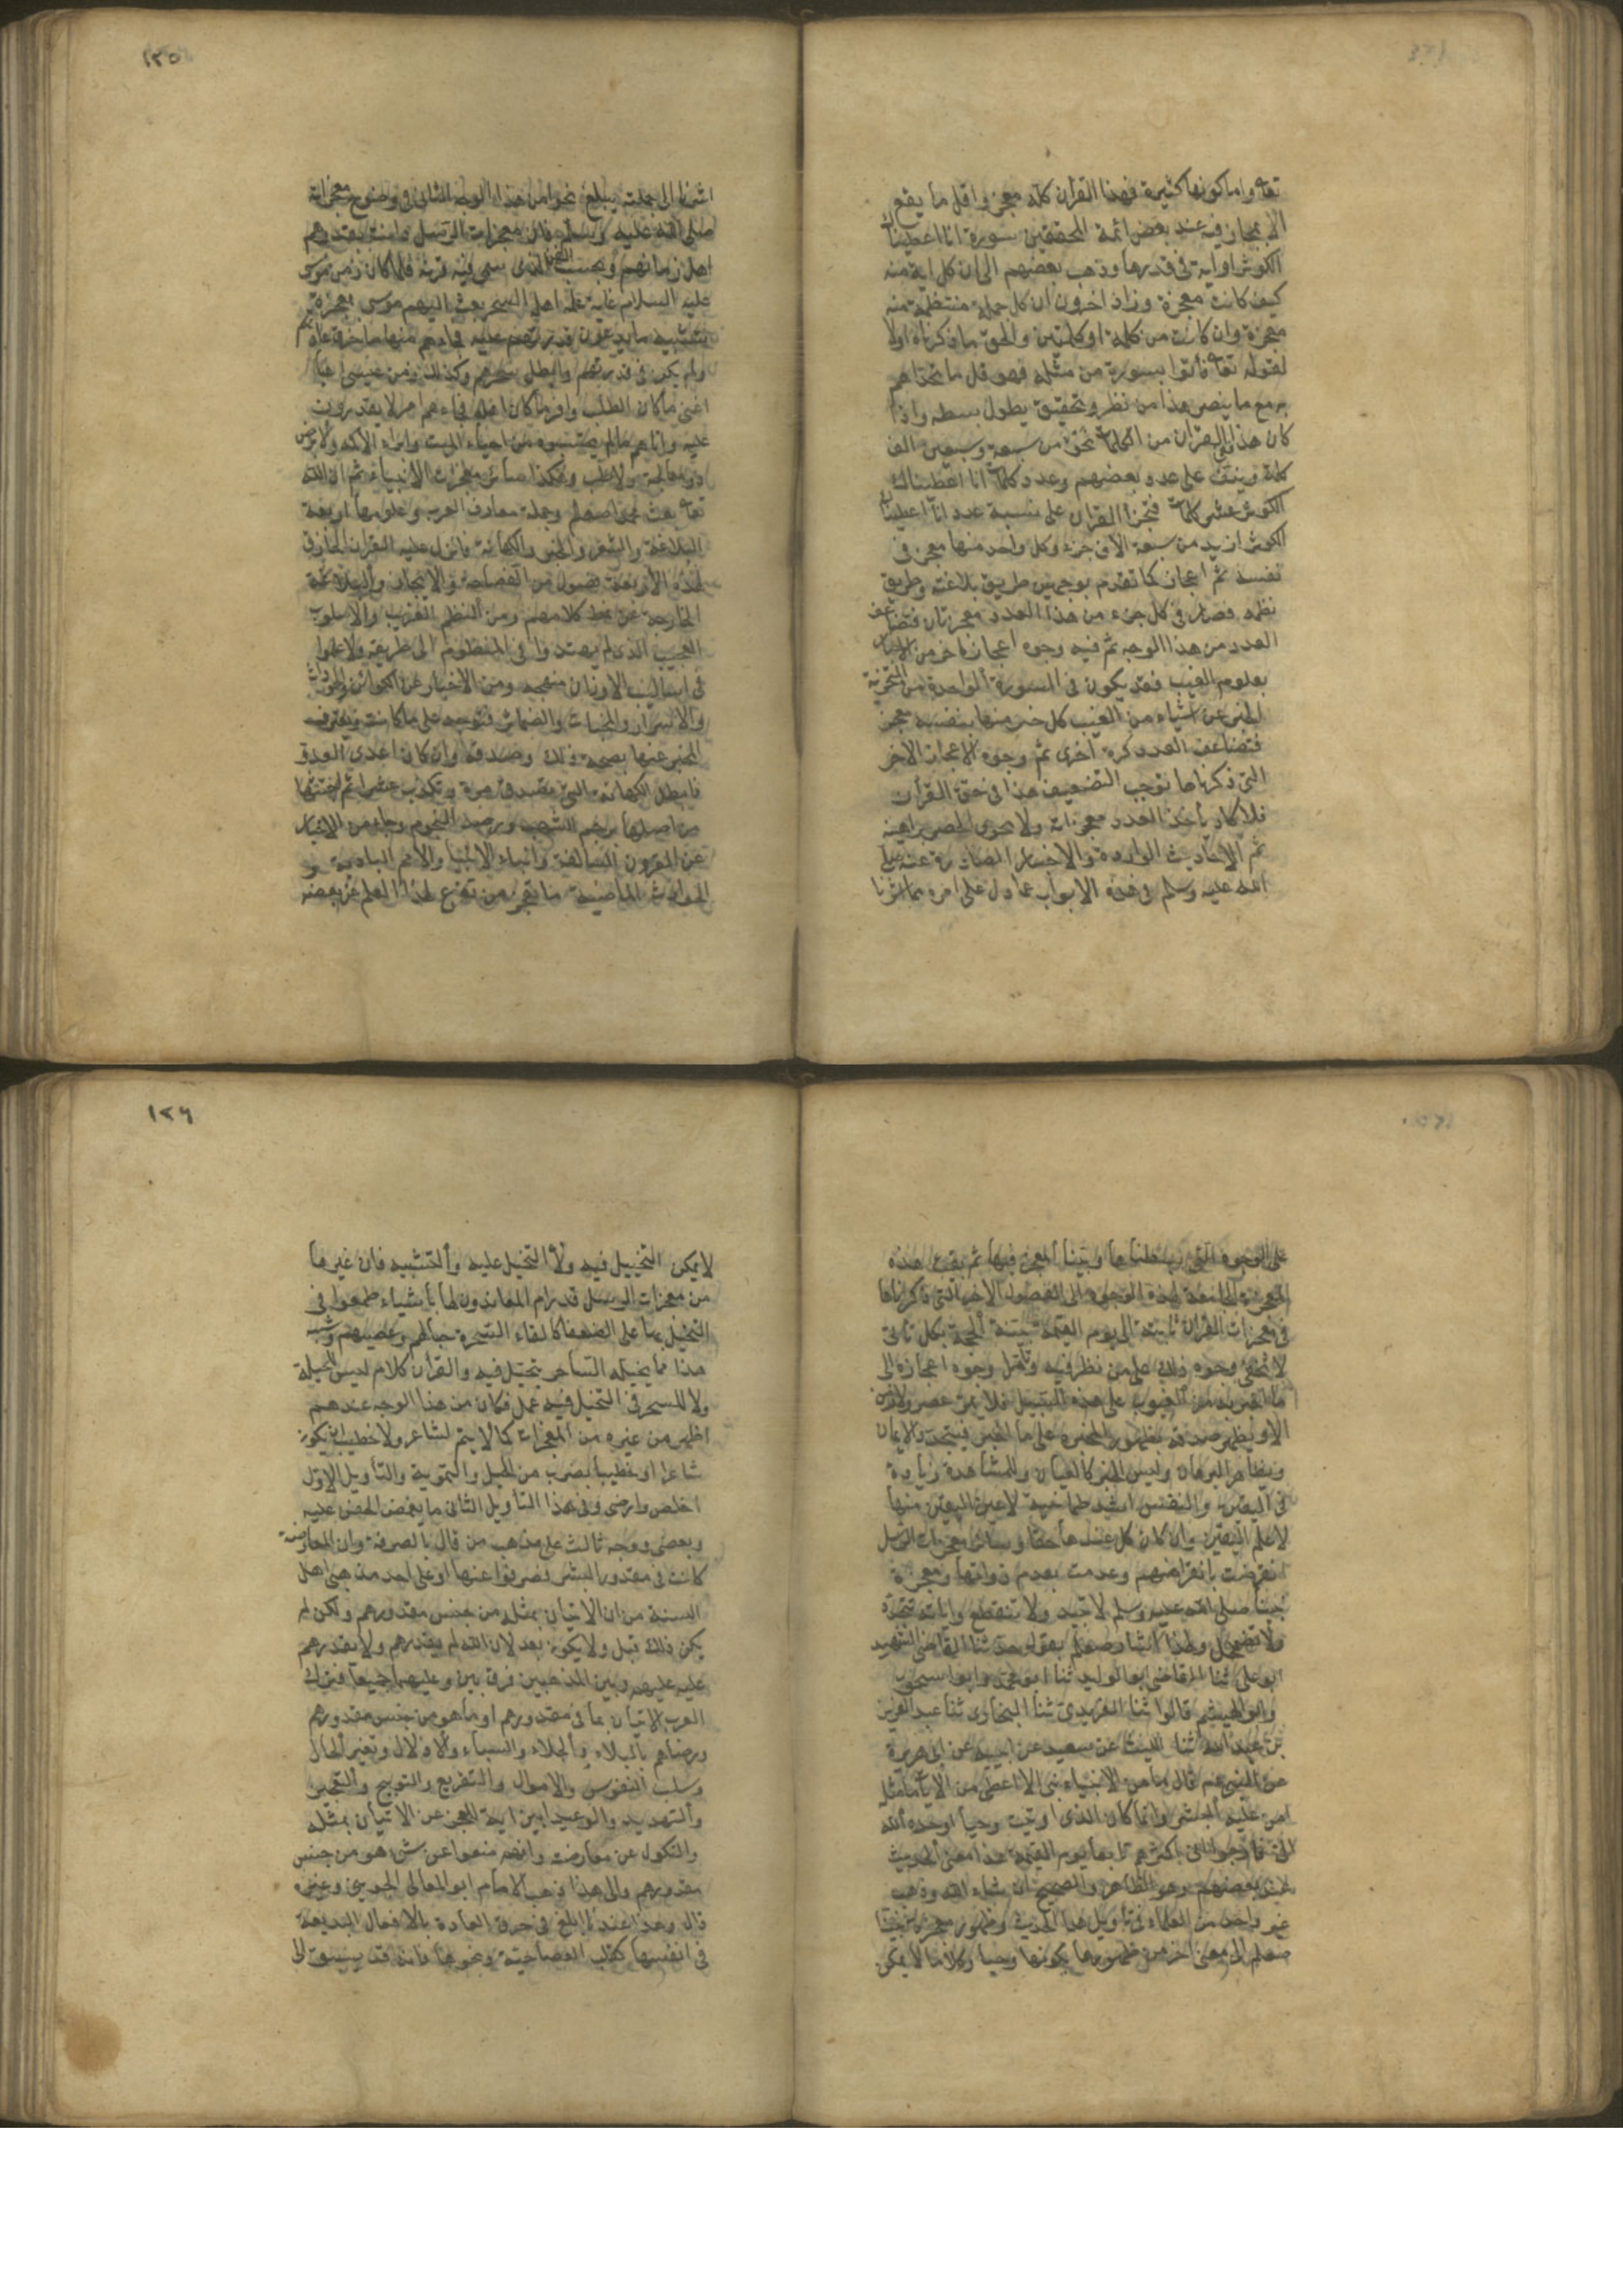 تعا واما كونها كثيرة فهذا القران كله معجز واقل ما يقع
الاعجاز فيه عند بعض ائمة المحققين سورة انا اعطيناك
الكوثر او اية في قدرها وذهب بعضهم الى ان كل اية منه
كيف كانت معجزة وزاد اخرون ان كل جملة منتظمة منه
معجزة وان كانت من كلمة او كلمتين والحق ما ذكرناه اولا
لقوله تعا فأتوا بسورة من مثله فهو قل ما تحداهم
به مع ما ينصر هذا من نظر وتحقيق يطول بسطه واذا
كان هذا ففي القران من الكلمات نحو من سبعة وسبعين الف
كلمة ونيف على عدد بعضهم وعدد كلمات انا اعطيناك
الكوثر عشر كلمات فتجزأ القران على نسبة عدد انا اعطيناك
الكوثر ازيد من سبعة الاف جزء وكل واحد منها معجز في
نفسه ثم اعجازه كما تقدم بوجهين طريق بلاغته وطريق
نظمه فصار في كل جزء من هذا العدد معجزتان فتضاعف
العدد من هذا الوجه ثم فيه وجوه اعجاز اخر من الاخبار
بعلوم الغيب فقد يكون في السورة الواحدة من التجزئة
الخبر عن اشياء من الغيب كل خبر منها بنفسه معجز
فتضاعف العدد كرة اخرى ثم وجوه الاعجاز الاخر
التي ذكرناها توجب التضعيف هذا في حق القرأن
فلا يكاد يأخذ العدد معجزاته ولا يحوى الحصر براهينه
ثم الاحاديث الواردة والاخبار الصادرة عنه صلى
الله عليه وسلم في هذه الابواب عما دل على امره مما اشرنا
١٢٥
اشرنا الى جملته يبلغ نحوا من هذا الوجه الثاني في وضوح معجزاته
صلى الله عليه وسلم فان معجزات الرسل كانت بقدر همم
اهل زمانهم وبحسب الفن الذي سمى فيه قرنه فلما كان زمن موسى
عليه السلام غاية علم اهله السحر بعث اليهم موسى بمعجزة
تشبه ما يدعون قدرتهم عليه فجاءهم منها ما خرق عادتهم
ولم يكن في قدرتهم وابطل سحرهم وكذلك زمن عيسى
اغنى ما كان الطب واوفر ما كان اهله فجاءهم امر لا يقدرون
عليه واتاهم ما لم يحتسبوه من احياء الميت وابراء الاكمه والابرص
دون معالجة ولا طب وهكذا سائر معجزات الانبياء ثم ان الله
تعا بعث محمدا صعلم وجملة معارف العرب وعلومها اربعة
البلاغة والشعر والخبر والكهانة فانزل عليه القران الخارق
لهذه الاربعة فصول من الفصاحة والايجاز والبلاغة
الخارجة عن نمط كلامهم ومن النظم الغريب والاسلوب
العجيب الذي لم يهتدوا في المنظوم الى طريقه ولا علموا
في اساليب الاوزان منهجه ومن الاخبار عن الكوائن والحوادث
والاسرار والمخبآت والضمائر فتوجد على ما كانت ويعترف
المخبر عنها بصحة ذلك وصدقه وان كان اعدى العدو
فابطل الكهانة التي تصدق مرة وتكذب عشرا ثم اجتثها
من اصلها برجم الشهب ورصد النجوم وجاء من الاخبار
عن القرون السالفة وانباء الانبياء والامم البائدة و
الحوادث الماضية ما يعجز من تفرغ لهذا العلم عن بعضه
على الوجوه التي بسطناها وبينا المعجز فيها ثم بقيت هذه
المعجزة الجامعة لهذه الوجوه الى الفصول الاخر التي ذكرناها
في معجزات القران ثابتة الى يوم القيمة بينة الحجة لكل امة تأتي
لا يخفى وجوه ذلك على من نظر فيه وتأمل وجوه اعجازه الى
ما اخبر به من الغيوب على هذه السبيل فلا يمر عصر ولا زمن
الا ويظهر صدقه بظهور مخبره على ما اخبر فيتجدد الايمان
ويتظاهر البرهان وليس الخبر كالعيان وللمشاهدة زيادة
في اليقين والنفس اشد طمأنينة لاعين اليقين منها
لا علم اليقين وان كان كل عندها حقا وسائر معجزات الرسل
انقرضت بانقراضهم وعدمت بعدم ذواتها ومعجزة
نبينا صلى الله عليه وسلم لا تبيد ولا تنقطع واياته تتجدد
ولا تضمحل ولهذا اشار صعلم بقوله حدثنا القاضي الشهيد
ابو علي ثنا القاضي ابو الوليد ثنا ابو محمد وابو اسحق
وابو الهيثم قالوا ثنا الفربري ثنا البخارى ثنا عبد العزيز
بن عبد الله ثنا الليث عن سعيد عن ابيه عن ابي هريرة
عن النبي عم قال ما من الانبياء نبي الا اعطى من الآيات ما مثله
امن عليه البشر وانما كان الذي اوتيت وحيا اوحاه الله
الى فارجو اني اكثرهم تابعا يوم القيمة هذا معنى الحديث
عند بعضهم وهو الظاهر والصحيح ان شاء الله وذهب
غير واحد من العلماء في تأويل هذا الحديث وظهور معجزة نبينا
صعلم الى معنى اخر من ظهورها بكونها وحيا وكلاما لا يمكن
١٢٦
لا يمكن التخييل فيه ولا التحيل عليه ولا التشبيه فان غيرها
من معجزات الرسل قد رام المعاندون لها بأشياء طمعوا في
التخييل بها على الضعفاء كالقاء السحرة حبالهم وعصيهم وشبه
هذا مما يخيله الساحر او يتحيل فيه والقرأن كلام ليس للحيلة
ولا للسحر في التخييل فيه عمل فكان من هذا الوجه عندهم
اظهر من غيره من المعجزات كما لا يتم لشاعر ولا خطيب ان يكون
شاعرا او خطيبا بضرب من الحيل والتمويه والتأويل الاول
اخلص وارضى وفي هذا التأويل الثاني ما يغمض الجفن عليه
ويغضى ووجه ثالث على مذهب من قال بالصرفة وان المعارضة
كانت في مقدور البشر فصرفوا عنها او على احد مذهبي اهل
السنة من ان الاتيان بمثله من جنس مقدورهم ولكن لم
يكن ذلك قبل ولا يكون بعد لان الله لم يقدرهم ولا يقدرهم
عليه وبين المذهبين فرق بين وعليهما جميعا فترك
العرب الاتيان بما في مقدورهم او ما هو من جنس مقدورهم
ورضاهم بالبلاء والجلاء والسباء والاذلال وتغير الحال
وسلب النفوس والاموال والتقريع والتوبيخ والتعجيز
والتهديد والوعيد ابين اية للعجز عن الاتيان بمثله
والنكول عن معارضته وانهم منعوا عن شيء هو من جنس
مقدورهم والى هذا ذهب الامام ابو المعالي الجويني وغيره
قال وهذا عندنا ابلغ في خرق العادة بالافعال البديعة
في انفسها كقلب العصا حية ونحوها فانه قد يسبق الى